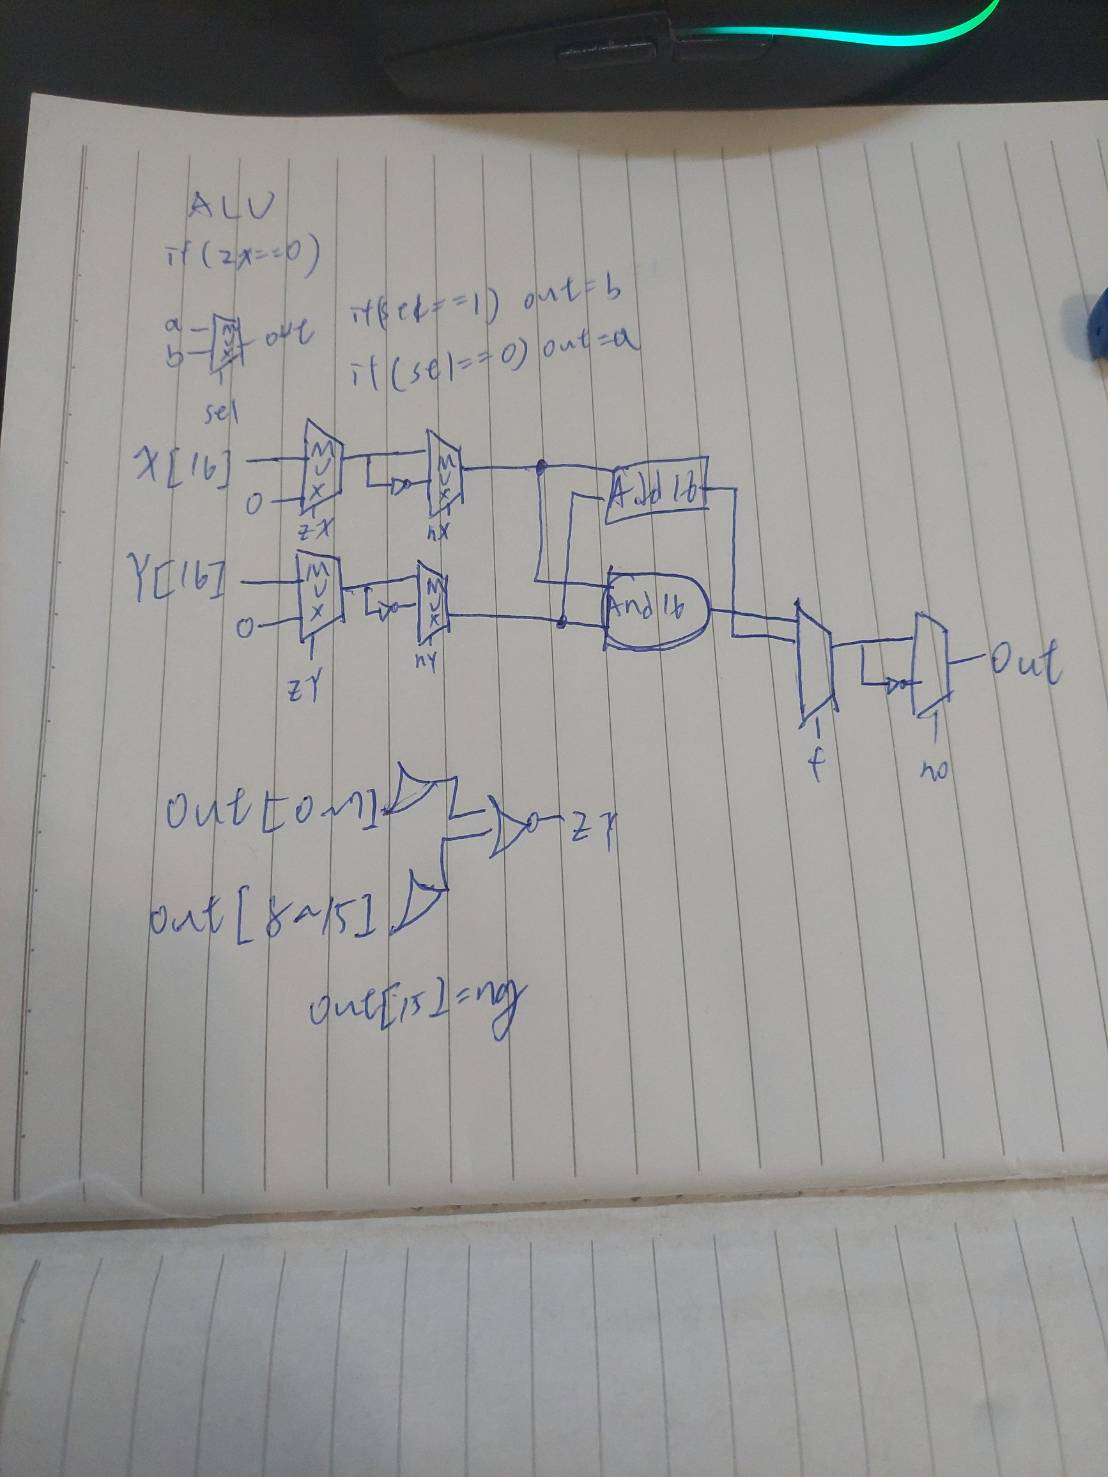 ALU
if(zx==0)
a
b
Mux
out
sel
if(sel==1) out=b
if(sel==0) out=a
X[16]
0
MUX
zX
MUX
nX
Add16
Y[16]
0
MUX
zY
MUX
nY
And16
f
no
Out
out[0~7]
zr
out[8~15]
out[15]=ng